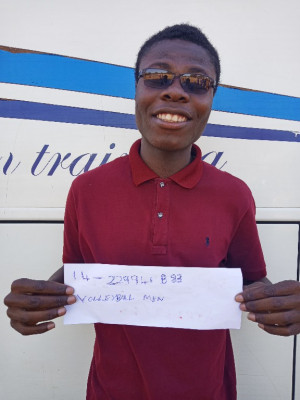 n training
14 - 229946 B 83
VOLLEYBAL MEN